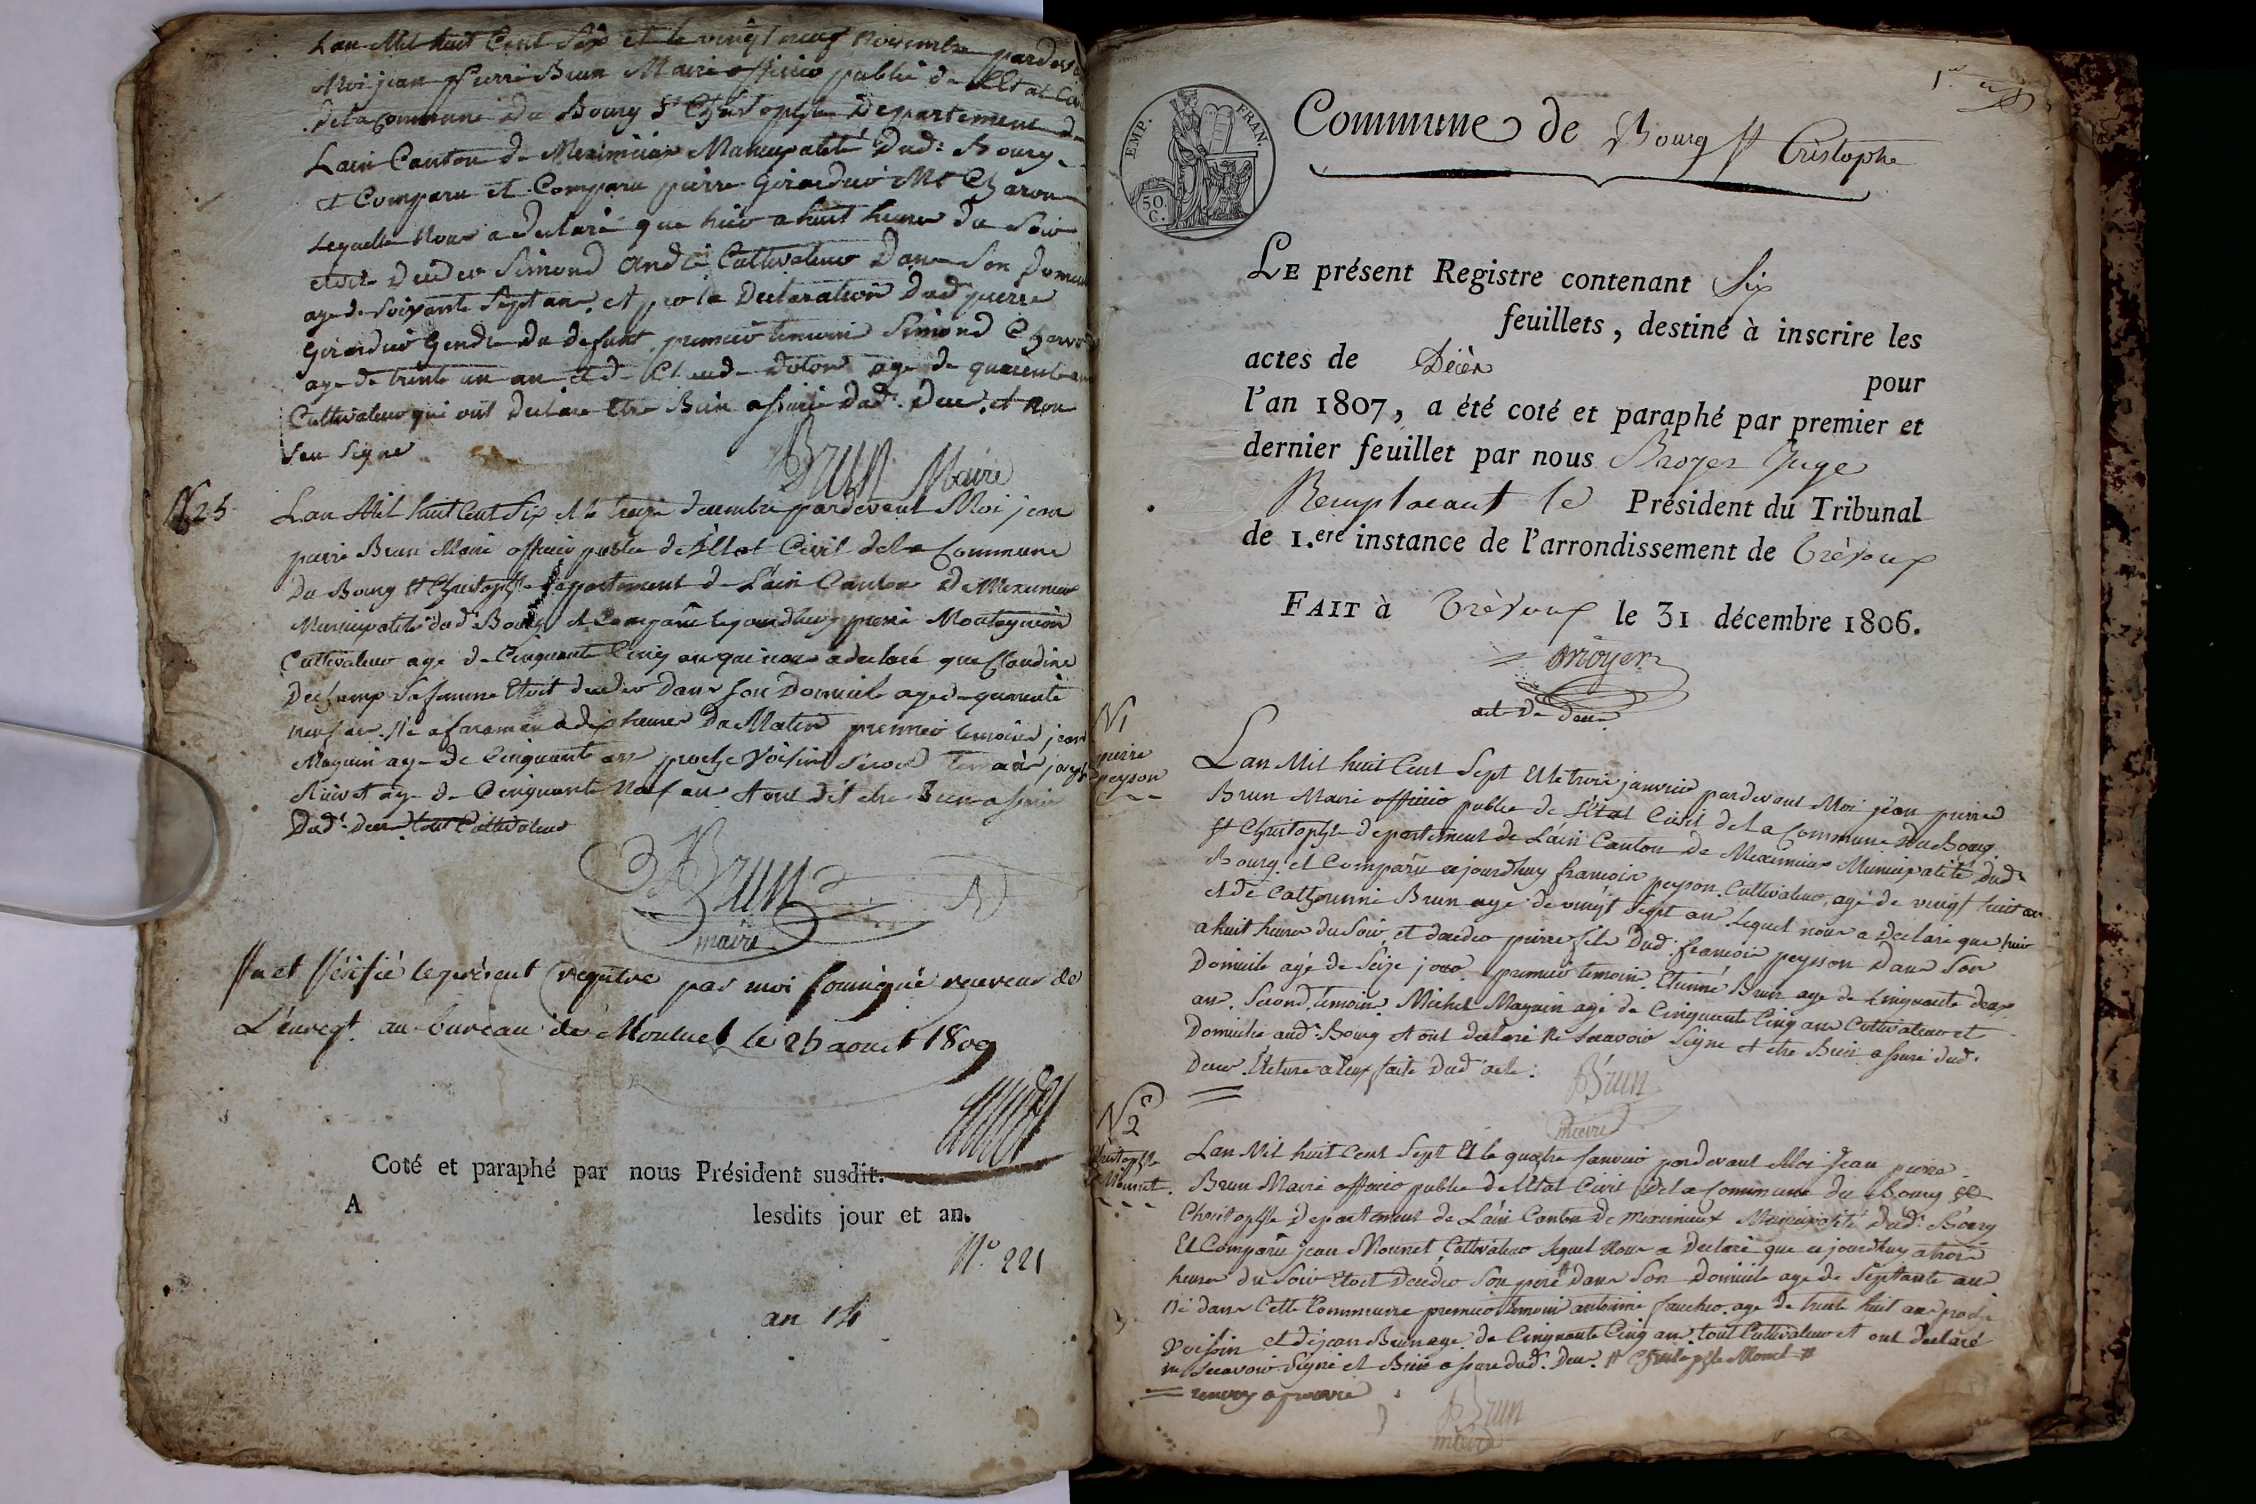 Lan Mil huit Cent Six et le vingt neuf novembre pardevant
Moi jean pierre Brun Maire officier public de LEtat Civil
de la Commune Du Bourg St Christophe Departement de
Lain Canton de Meximieux Municipalité Dud: Bourg
et Comparu et Comparu pierre Girardier Md Charon
Lequelle Nous a declaré que hier a huit heure du Soir
etoit deceder Simond André Cultivateur Dans Son Domicile
age de Soixante Sept ans. et par la Declaration Dud pierre
Girardier Gendre Du defunt premier temoin Simond
age de trente un an et de Claude age de quarente ans
Cultivateur qui ont Declaré Etre Bien assuré Dud: Deces. et Non
Seu Signe
BRUN Maire
N 25
Lan Mil huit Cent Six et le treize decembre pardevant Moi jean
pierre Brun Maire officier public de LEtat Civil dela Commune
Du Bourg St Christophe departement de Lain Canton De Meximieux
Municipalité dud: Bourg et Comparu cejourdhuy pierre Montagnieu
Cultivateur age de Cinquante Cinq an qui nous a declaré que Claudine
Dechamp Safemme Etoit deceder Dans Son Domicile agée de quarante
neuf an. Ne a faramans a dix heures Du Matin premier temoin jean
Maguin age de Cinquante an proche Voisin Second Temoin joseph
age de Cinquante Neuf an et ont dit etre Bien assuré
Dud: Deces tout Cultivateur
BRUN
maire
Vu et Vérifié le présent registre par moi soussigné receveur de
L'enregt. au bureau de Montluel le 25 aoust 1809
Coté et paraphé par nous Président susdit.
A lesdits jour et an.
N.° 221
an 14
1.er
EMP. FRAN.
50.
C.
Commune de Bourg St Cristophe
LE présent Registre contenant Six
feuillets, destiné à inscrire les
actes de Décès pour
l'an 1807, a été coté et paraphé par premier et
dernier feuillet par nous Broyer Juge
Remplacant le Président du Tribunal
de 1.ere instance de l'arrondissement de Trévoux
FAIT à Trévoux le 31 décembre 1806.
Broyer
act De deces
N 1
pierre
peyson
Lan Mil huit Cent Sept Et le trois janvier pardevant Moi jean pierre
Brun Maire officier public de Létat Civil dela Commune Du Bourg
St Christophe departement de Lain Canton de Meximieux Municipalité Dud:
Bourg. et Comparu cejourdhuy francois peyson Cultivateur, agé de vingt huit an
et de Catherinne Brun age de vingt Sept an Lequel nous a Declaré que hier
a huit heures du Soir, et deceder pierre fils Dud: francois peysson Dans Son
Domicile agé de Seize jour. premier temoin. Etienne Brun age de Cinquante deux
an. Second temoin. Michel Maguin agé de Cinquante Cinq ans Cultivateur et
Domicilie aud: Bourg et ont declaré Ne Scavoir Signe et etre Bien assuré dud:
Deces Lecture a Eux faite Dud: acte:
BRUN
maire
N 2
Christophe
Mounet
Lan Mil huit Cent Sept Et le quatre Janvier pardevant Moi Jean pierre
Brun Maire officier public de LEtat Civil Dela Commune du Bourg St
Christophe Departement de Lain Canton De Meximieux Municipalité Dud: Bourg
Et Comparu jean Mounet Cultivateur Lequel Nous a Declaré que cejourdhuy a trois
heures du Soir Etoit Deceder Son pere # Dans Son Domicile age de Septante an
Né dans Cette Commune premier temoin antoine faucher. age de trente huit an proche
Voisin et de jean Brun age. de Cinquante Cinq an. tout Cultivateur et ont declaré
ne Scavoir Signé et Bien assure dud: Deces. # Christophe Mounet #
renvoy aprouvé
BRUN
maire